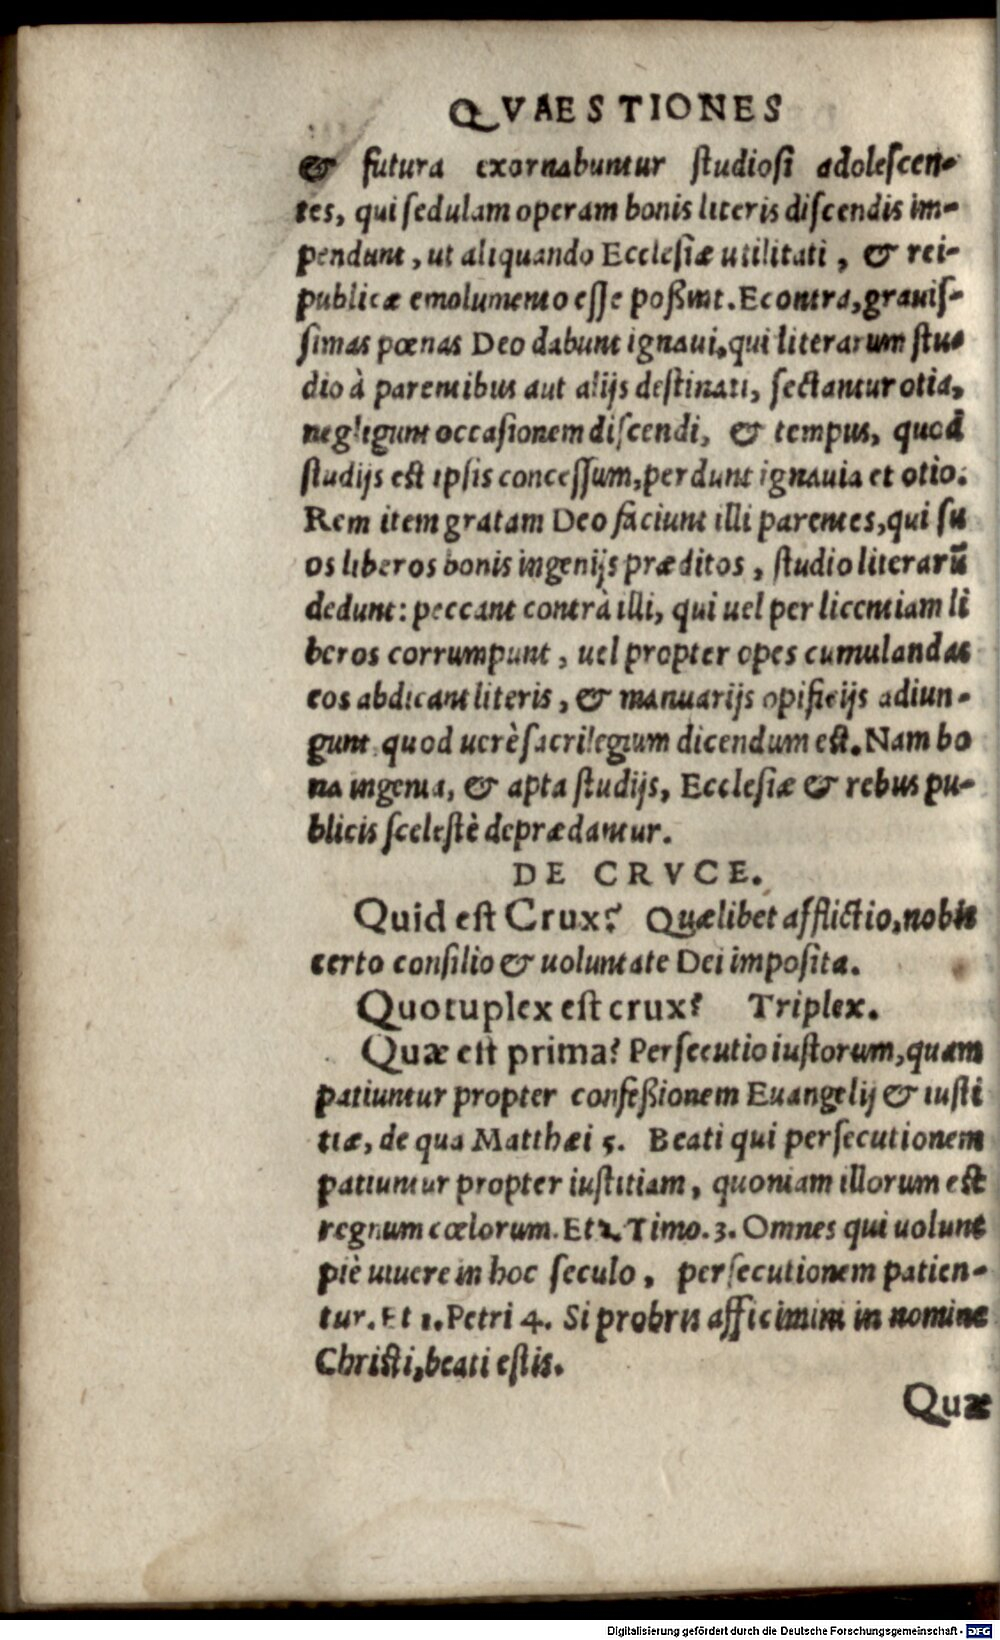 QVAESTIONES
& futura exornabuntur ſtudioſi adoleſcen-
tes, qui ſedulam operam bonis literis diſcendis im-
pendunt, ut aliquando Eccleſiæ utilitati, & rei-
publicæ emolumento eſſe poßint. Econtra, grauiſ-
ſimas pœnas Deo dabunt ignaui, qui literarum ſtu-
dio à parentibus aut alijs deſtinati, ſectantur otia,
negligunt occaſionem diſcendi, & tempus, quod
ſtudijs eſt ipſis conceſſum, perdunt ignauia et otio.
Rem item gratam Deo faciunt illi parentes, qui ſu
os liberos bonis ingenijs præditos, ſtudio literarũ
dedunt: peccant contrà illi, qui uel per licentiam li
beros corrumpunt, uel propter opes cumulandas
eos abdicant literis, & manuarijs opificijs adiun-
gunt quod uerè ſacrilegium dicendum eſt. Nam bo
na ingenia, & apta ſtudijs, Eccleſiæ & rebus pu-
blicis ſceleſtè deprædantur.
DE CRVCE.
Quid eſt Crux? Quælibet afflictio, nobis
certo conſilio & uoluntate Dei impoſita.
Quotuplex eſt crux? Triplex.
Quæ eſt prima? Perſecutio iuſtorum, quam
patiuntur propter confeßionem Euangelij & iuſti
tiæ, de qua Matthæi 5. Beati qui perſecutionem
patiuntur propter iuſtitiam, quoniam illorum eſt
regnum cœlorum. Et 2. Timo. 3. Omnes qui uolunt
piè uiuere in hoc ſeculo, perſecutionem patien-
tur. Et 1. Petri 4. Si probris afficimini in nomine
Chriſti, beati eſtis.
Quæ
Digitalisierung gefördert durch die Deutsche Forschungsgemeinschaft - DFG